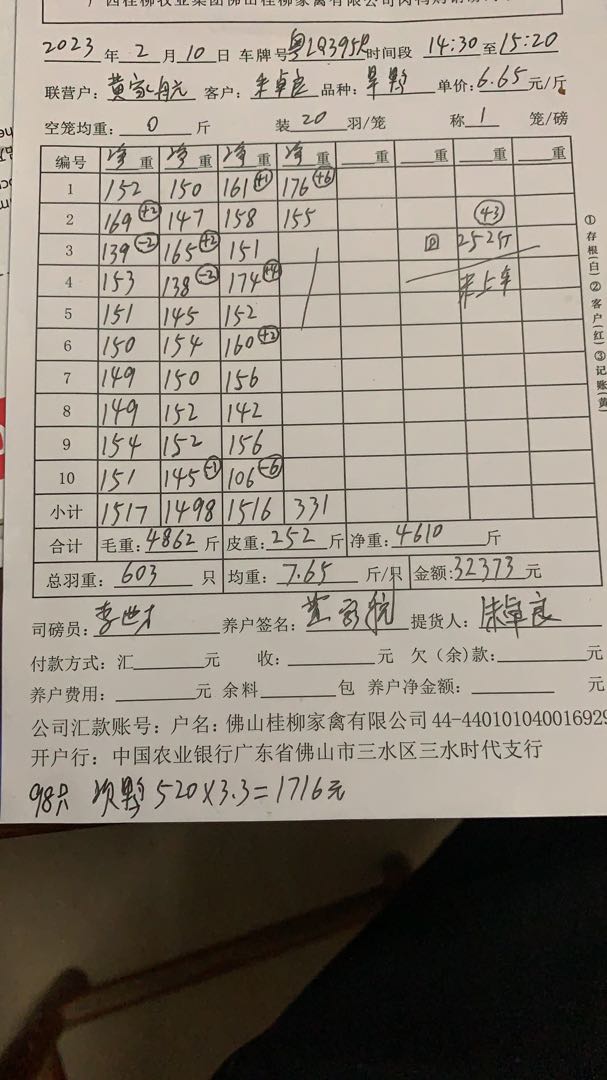 2023 年 2 月 10 日 车牌号 粤LQ395R 时间段 14:30 至 15:20
联营户: 黄家航 客户: 朱卓良 品种: 单价: 6.65 元/斤
空笼均重: 0 斤 装 20 羽/笼 称 1 笼/磅
编号 净重 净重 净重 净重 重 重 重 重
1 152 150 161 (+1) 176 (+6)
2 169 (+2) 147 158 155 (43)
3 139 (-2) 165 (+2) 151 回 252斤
4 153 138 (-2) 174 (+4) 未上车
5 151 145 152
6 150 154 160 (+2)
7 149 150 156
8 149 152 142
9 154 152 156
10 151 145 (-1) 106 (-6)
小计 1517 1498 1516 331
合计 毛重: 4862 斤 皮重: 252 斤 净重: 4610 斤
总羽重: 603 只 均重: 7.65 斤/只 金额: 32373 元
司磅员: 李世才 养户签名: 黄家航 提货人: 朱卓良
付款方式: 汇 元 收: 元 欠(余)款: 元
养户费用: 元 余料 包 养户净金额: 元
公司汇款账号: 户名: 佛山桂柳家禽有限公司 44-440101040016929
开户行: 中国农业银行广东省佛山市三水区三水时代支行
98只 520×3.3=1716元
①存根(白)②客户(红)③记账(黄)